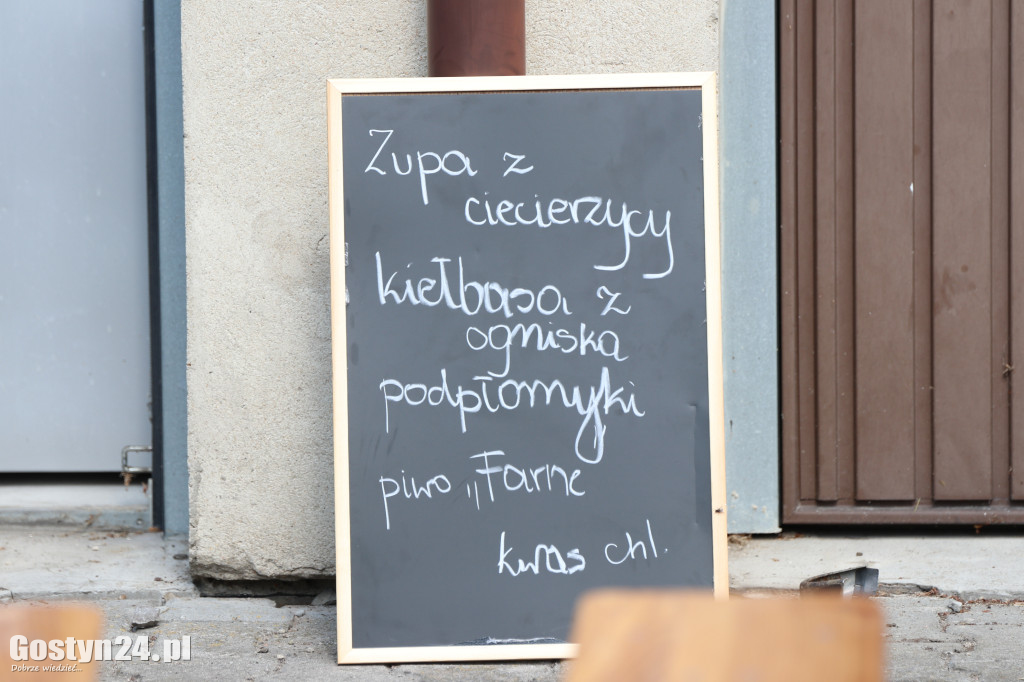 Zupa z
ciecierzycy
kiełbasa z
ogniska
podpłomyki
piwo „Farne
kwas chl.
Gostyn24.pl
Dobrze wiedzieć...